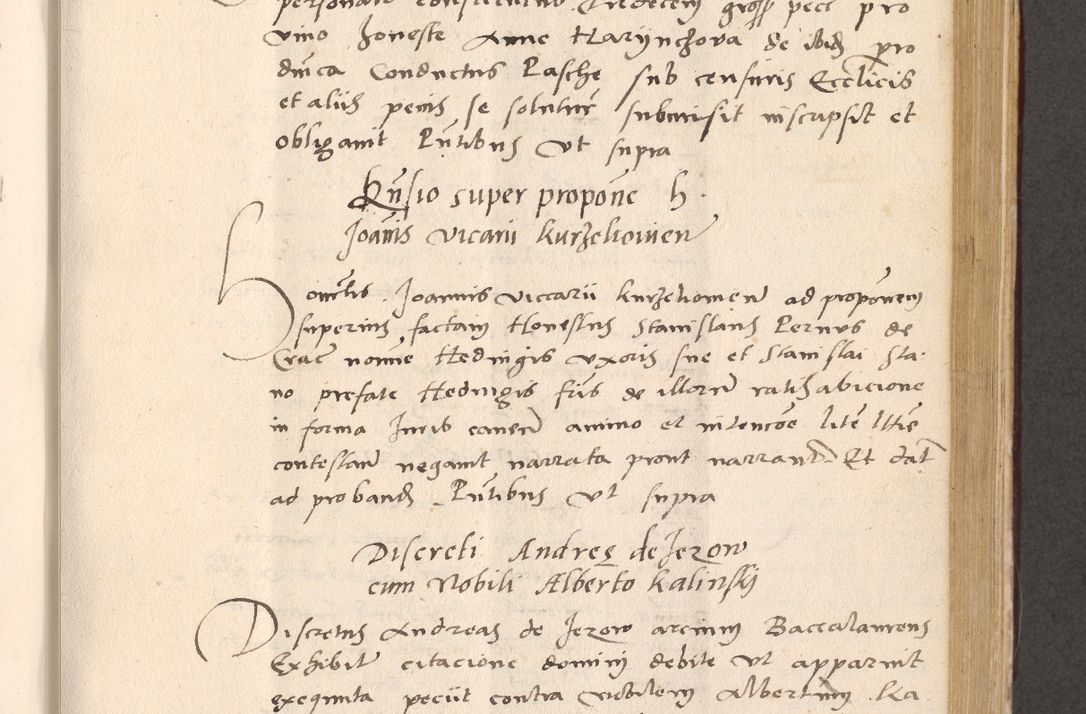 personalr constitutus Tredecem gross pecc pro
vino honeste Anne Harÿnchova de ibid pro
dnica Conductus Pasche sub censuris Ecclicis
et aliis penis se soluturum submisit inscripsit et
obligavit Pntibus Vt supra
Rnsio super propone h.
Joanis vicarii kurzeliowien
Honorabilis Joannis viccarii kurzeliowien ad proponem
superius factam Honestus Stanislaus Pernus de
Crac nomine Hedvigis uxoris sue et Stanislai Sta
no prefate Hedvigis fris de illorum ratihabicione
in forma Juris caven animo et intencoe litem lttie
contestan negavit narrata prout narrantur Et dat
ad proband Pntibus Vt supra
Discreti Andree de Jezow
cum Nobili Alberto Kalinskÿ
Discretus Andreas de Jezow arcium Baccalaureus
Exhibitr citacione domini debite vt apparuit
exequuta peciit contra Nobilem Albertum Ka